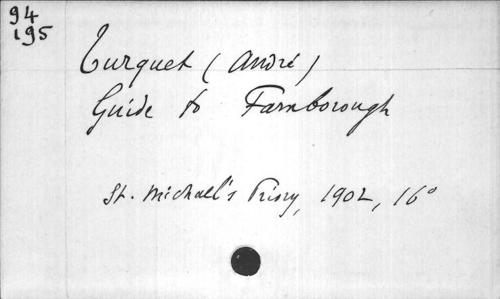 94
195
Turquet (André)
Guide to Farnborough
St. Michael's Priory, 1902, 16°